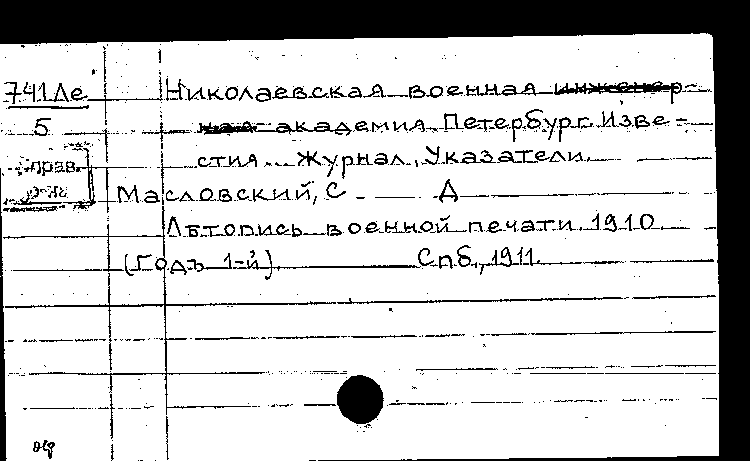 741 Ле Николаевская военная инженер-
5 ная академия. Петербург. Изве-
стия... Журнал. Указатели.
Справ.
Масловский, С Д
Летопись военной печати. 1910
(Годъ 1-й). Спб., 1911.